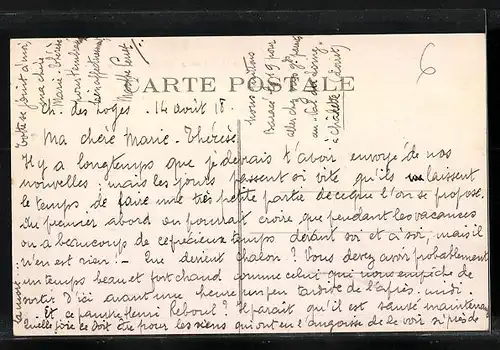 CARTE POSTALE
Ch. des Loges. 14 avril 18.
Ma chère Marie-Thérèse
Il y a longtemps que je devrais t'avoir envoyé de nos
nouvelles; mais les jours passent si vite qu'ils ne laissent
le temps de faire une très petite partie de ce que l'on se propose.
Au premier abord on pourrait croire que pendant les vacances
on a beaucoup de ce précieux temps devant soi et à soi, mais il
n'en est rien! - Que devient Chalon? Vous devez avoir probablement
un temps beau et fort chaud comme celui qui nous empêche de
sortir d'ici avant une heure un peu tardive de l'après-midi.
- Et ce pauvre Henri Reboul? Il paraît qu'il est sauvé maintenant
Quelle joie ce doit être pour les siens qui ont eu l'angoisse de le voir si près de
la mort...
se joint à moi
ma chère
Marie-Thérèse
pour t'embrasser
bien affectueusement
Nous quittons
le 19 pour
aller chez nos gds parents
au
à
6